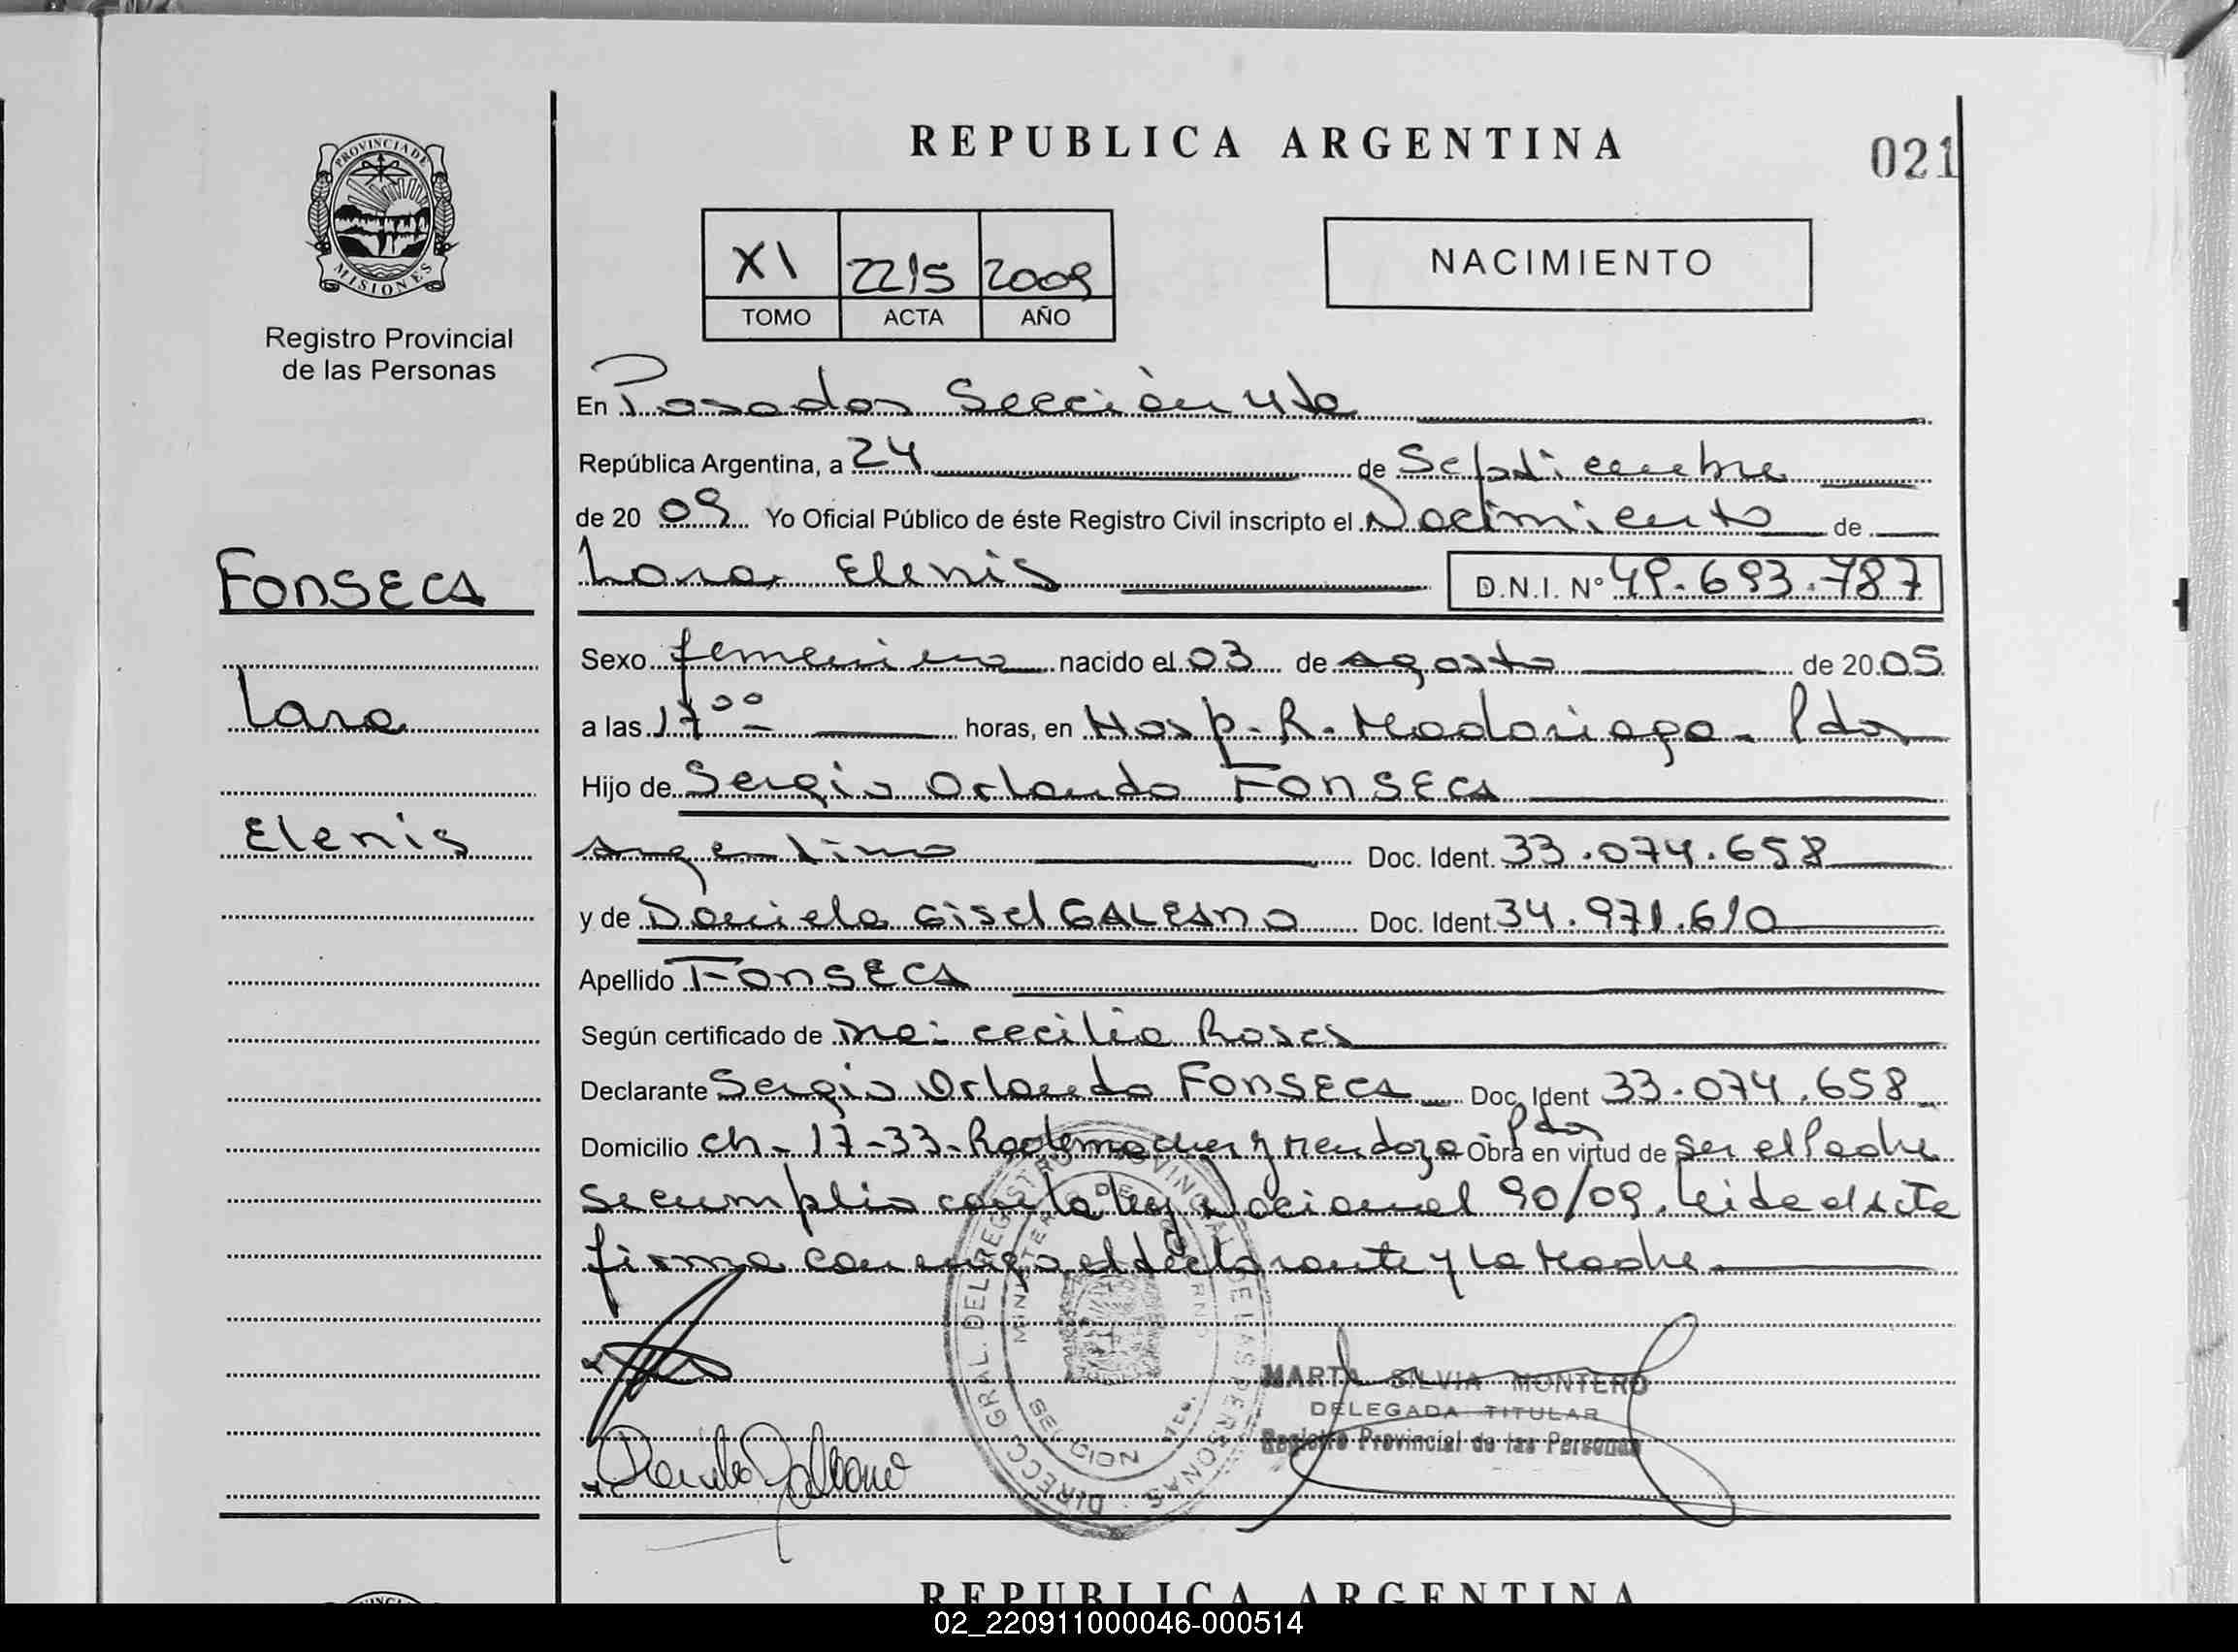 REPUBLICA ARGENTINA
021
PROVINCIA DE
MISIONES
Registro Provincial
de las Personas
XI 2215 2009
TOMO ACTA AÑO
NACIMIENTO
En Posadas Sección 4ta
República Argentina, a 24 de Septiembre
de 20 09 Yo Oficial Público de éste Registro Civil inscripto el Nacimiento de
Lara Elenis D.N.I. Nº 49.693.787
FONSECA
Lara
Elenis
Sexo femenino nacido el 03 de agosto de 20 09
a las 17 00 horas, en Hosp. R. Madariaga. Pdas
Hijo de Sergio Orlando FONSECA
Argentino Doc. Ident. 33.074.658
y de Daniela Gisel GALEANO Doc. Ident. 34.971.610
Apellido FONSECA
Según certificado de Cecilia Roses
Declarante Sergio Orlando FONSECA Doc. Ident 33.074.658
Domicilio Ch. 17-33- y Mendoza Pdas Obra en virtud de ser el Padre
se cumplio con la ley Nacional 90/09. Leida el Acta
firma conmigo el declarante y la Madre.
DIRECC. GRAL. DEL REGISTRO PROVINCIAL DE LAS PERSONAS
MARTA SILVIA MONTERO
DELEGADA TITULAR
Registro Provincial de las Personas
Daniela Galeano
REPUBLICA ARGENTINA
02_220911000046-000514